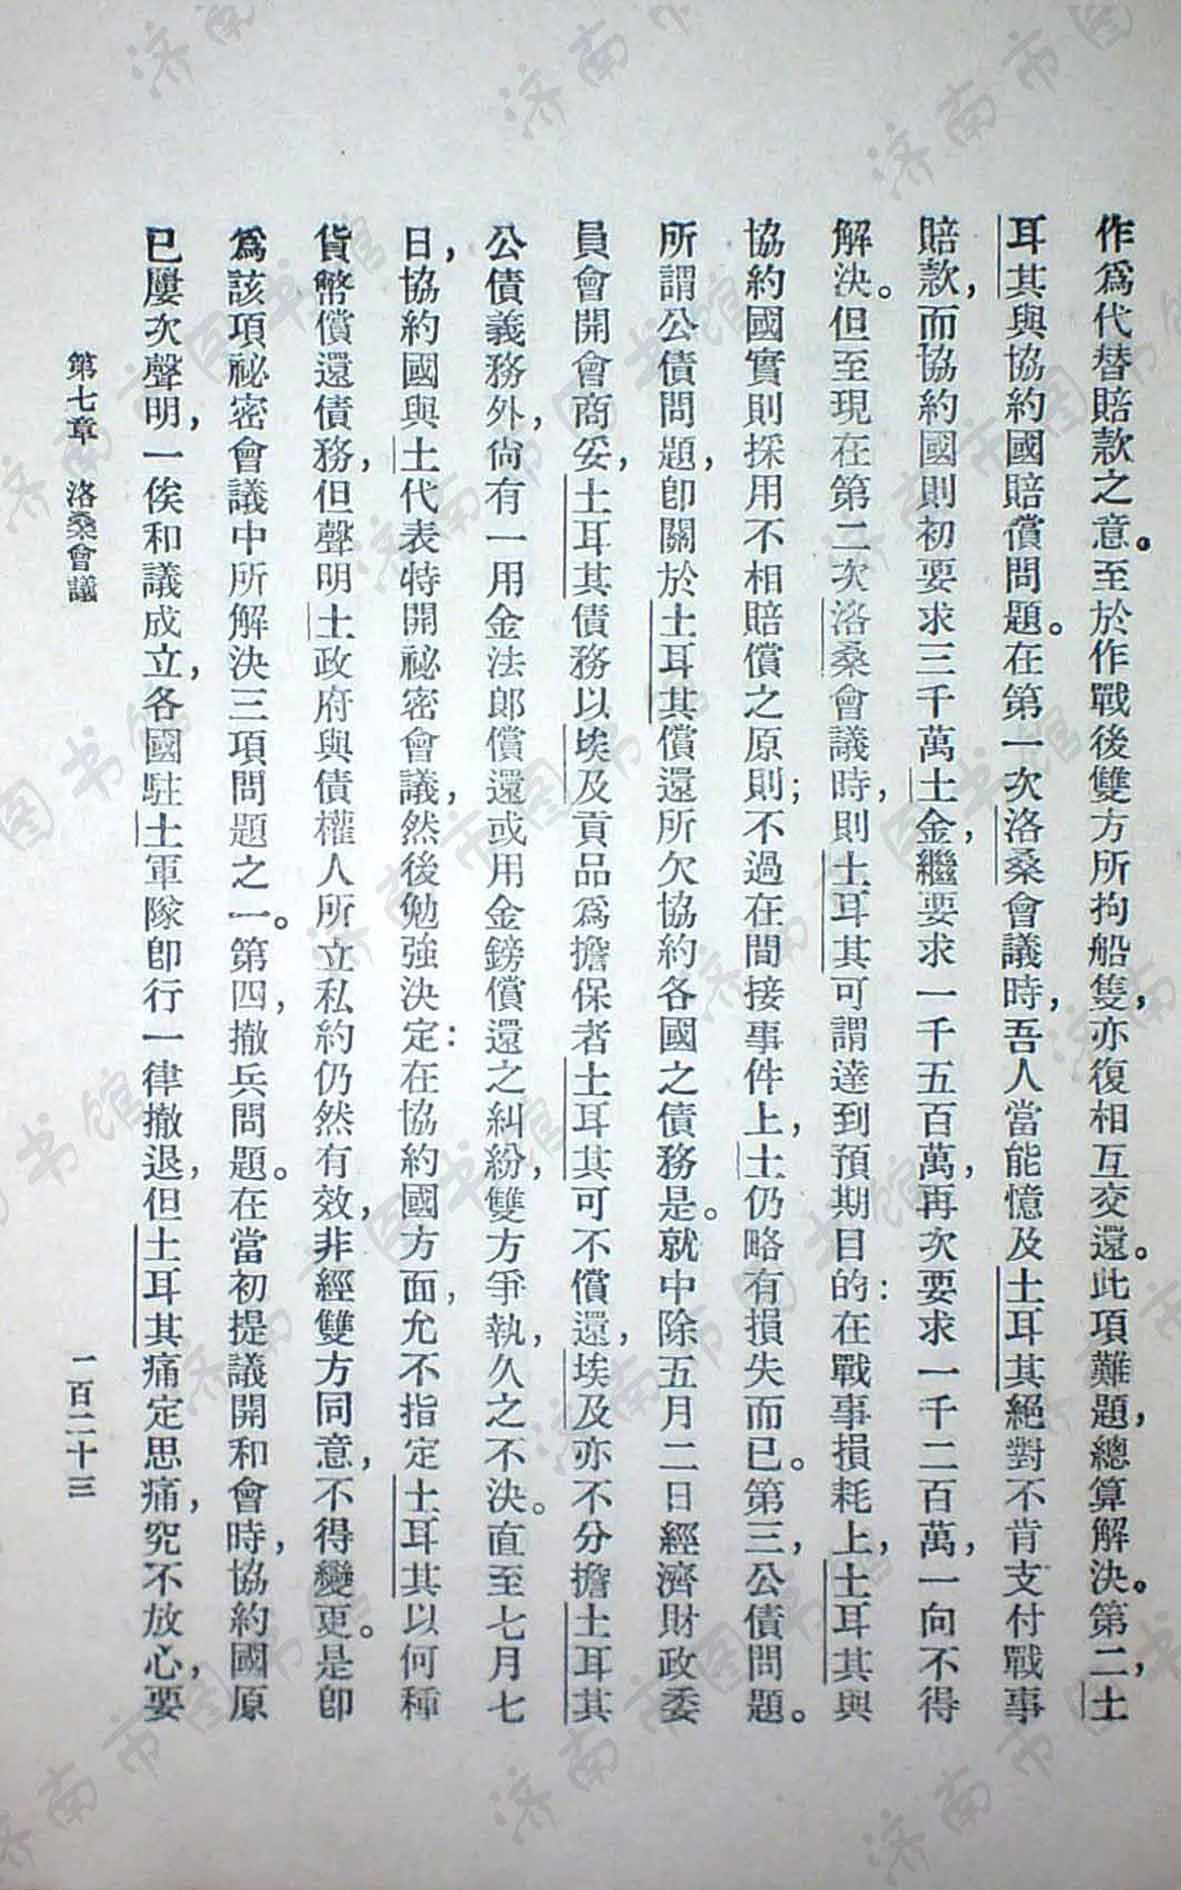 作爲代替賠款之意。至於作戰後雙方所拘船隻，亦復相互交還。此項難題，總算解決。第二，土
耳其與協約國賠償問題。在第一次洛桑會議時，吾人當能憶及土耳其絕對不肯支付戰事
賠款，而協約國則初要求三千萬土金，繼要求一千五百萬，再次要求一千二百萬，一向不得
解決。但至現在第二次洛桑會議時，則土耳其可謂達到預期目的：在戰事損耗上，土耳其與
協約國實則採用不相賠償之原則；不過在間接事件上，土仍略有損失而已。第三，公債問題。
所謂公債問題，卽關於土耳其償還所欠協約各國之債務是。就中除五月二日經濟財政委
員會開會商妥，土耳其債務以埃及貢品爲擔保者土耳其可不償還，埃及亦不分擔土耳其
公債義務外，尙有一用金法郞償還或用金鎊償還之糾紛，雙方爭執，久之不決。直至七月七
日，協約國與土代表特開祕密會議，然後勉強決定：在協約國方面，允不指定土耳其以何種
貨幣償還債務，但聲明土政府與債權人所立私約仍然有效，非經雙方同意，不得變更。是卽
爲該項祕密會議中所解決三項問題之一。第四，撤兵問題。在當初提議開和會時，協約國原
已屢次聲明，一俟和議成立，各國駐土軍隊卽行一律撤退，但土耳其痛定思痛，究不放心，要
第七章　洛桑會議　一百二十三
濟南市图书馆